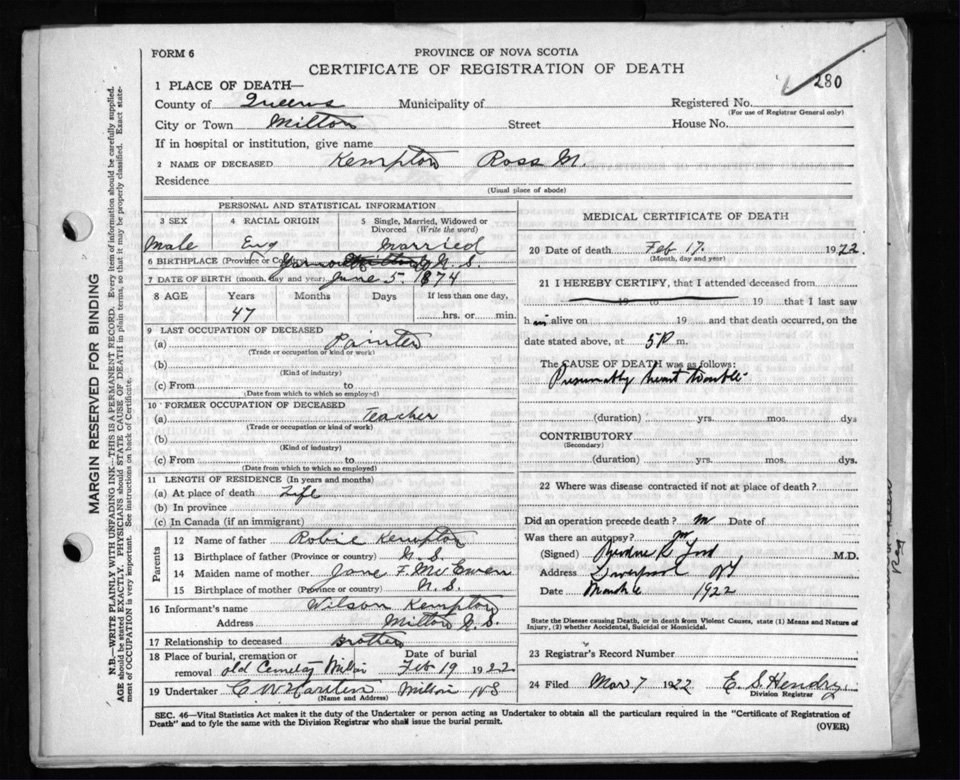 FORM 6
PROVINCE OF NOVA SCOTIA
CERTIFICATE OF REGISTRATION OF DEATH
280
1 PLACE OF DEATH—
County of Queens Municipality of Registered No.
(For use of Registrar General only)
City or Town Milton Street House No.
If in hospital or institution, give name
2 NAME OF DECEASED Kempton Ross M.
Residence
(Usual place of abode)
PERSONAL AND STATISTICAL INFORMATION
3 SEX 4 RACIAL ORIGIN 5 Single, Married, Widowed or Divorced (Write the word)
Male Eng Married
6 BIRTHPLACE (Province or Country) N.S.
7 DATE OF BIRTH (month, day and year) June 5. 1874
8 AGE Years Months Days If less than one day,
47 hrs. or min.
9 LAST OCCUPATION OF DECEASED
(a) Painter
(Trade or occupation or kind of work)
(b)
(Kind of industry)
(c) From to
(Date from which to which so employed)
10 FORMER OCCUPATION OF DECEASED
(a) Teacher
(Trade or occupation or kind of work)
(b)
(Kind of industry)
(c) From to
(Date from which to which so employed)
11 LENGTH OF RESIDENCE (In years and months)
(a) At place of death Life
(b) In province
(c) In Canada (if an immigrant)
Parents
12 Name of father Robie Kempton
13 Birthplace of father (Province or country) N.S.
14 Maiden name of mother Jane F. McEwen
15 Birthplace of mother (Province or country) N.S.
16 Informant's name Wilson Kempton
Address Milton N.S.
17 Relationship to deceased Brother
18 Place of burial, cremation or Date of burial
removal old Cemetery Milton Feb 19 1922
19 Undertaker C W Milton NS
(Name and Address)
MEDICAL CERTIFICATE OF DEATH
20 Date of death Feb 17. 1922.
(Month, day and year)
21 I HEREBY CERTIFY, that I attended deceased from
19 to 19 that I last saw
him alive on 19 and that death occurred, on the
date stated above, at 5 P m.
The CAUSE OF DEATH was as follows:
Presumably heart trouble
(duration) yrs. mos. dys
CONTRIBUTORY
(Secondary)
(duration) yrs. mos. dys.
22 Where was disease contracted if not at place of death?
Did an operation precede death? Date of
Was there an autopsy?
(Signed) Ford M.D.
Address Liverpool NS
Date March 6 1922
State the Disease causing Death, or in death from Violent Causes, state (1) Means and Nature of
Injury, (2) whether Accidental, Suicidal or Homicidal.
23 Registrar's Record Number
24 Filed Mar 7 1922 E. S. Hendry
Division Registrar
SEC. 46—Vital Statistics Act makes it the duty of the Undertaker or person acting as Undertaker to obtain all the particulars required in the "Certificate of Registration of
Death" and to fyle the same with the Division Registrar who shall issue the burial permit.
(OVER)
MARGIN RESERVED FOR BINDING
N.B.—WRITE PLAINLY WITH UNFADING INK—THIS IS A PERMANENT RECORD. Every item of information should be carefully supplied.
AGE should be stated EXACTLY. PHYSICIANS should STATE CAUSE OF DEATH in plain terms, so that it may be properly classified. Exact statement
of OCCUPATION is very important. See instructions on back of Certificate.